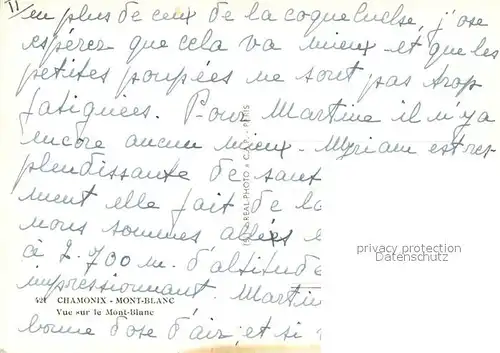 II
en plus de ceux de la coqueluche, j'ose
espérer que cela va mieux et que les
petites poupées ne sont pas trop
fatiguées. Pour Martine il n'y a
encore aucun mieux. Myriam est res-
plendissante de sant
ment elle fait de la
nous sommes allées
à 2.700 m. d'altitude
impressionnant. Martin
bonne dose d'air, et si
421 CHAMONIX - MONT-BLANC
Vue sur le Mont-Blanc
REAL-PHOTO
PARIS
privacy protection
Datenschutz